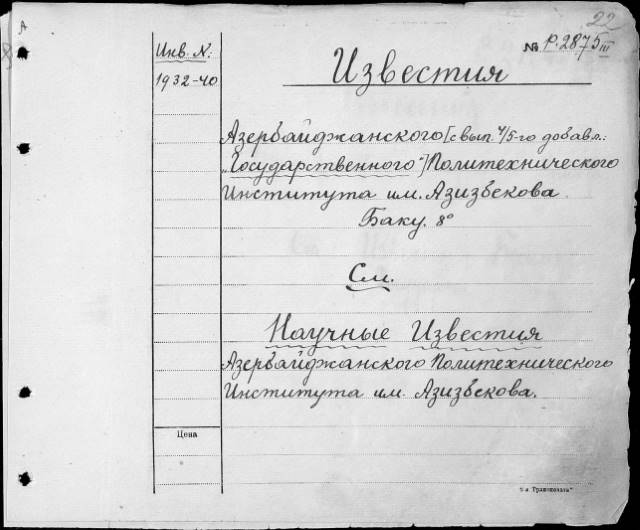 22
А
Инв. N.
1932-40
№ Р.2875 III
Известия
Азербайджанского [с вып. 4/5-го добавл.:
„Государственного"] Политехнического
Института им. Азизбекова.
Баку. 8°
См.
Научные Известия
Азербайджанского Политехнического
Института им. Азизбекова.
Цена